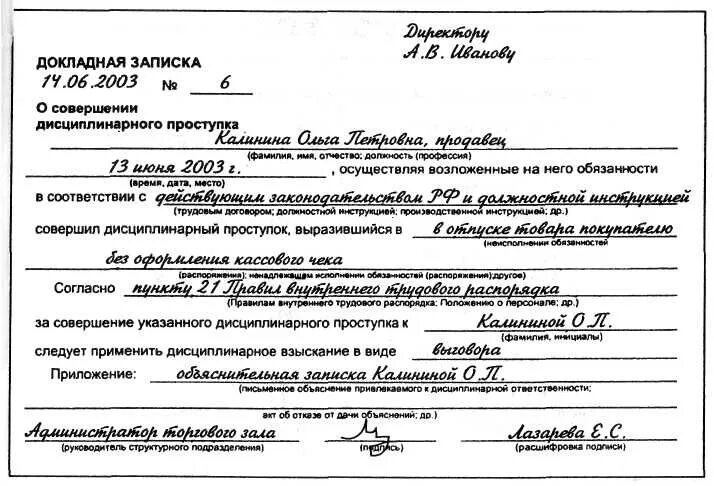 Директору
А.В. Иванову
ДОКЛАДНАЯ ЗАПИСКА
14.06.2003 № 6
О совершении
дисциплинарного проступка
Калинина Ольга Петровна, продавец
(фамилия, имя, отчество; должность (профессия)
13 июня 2003 г. , осуществляя возложенные на него обязанности
(время, дата, место)
в соответствии с действующим законодательством РФ и должностной инструкцией
(трудовым договором; должностной инструкцией; производственной инструкцией; др.)
совершил дисциплинарный проступок, выразившийся в в отпуске товара покупателю
(неисполнении обязанностей
без оформления кассового чека
(распоряжения); ненадлежащем исполнении обязанностей (распоряжения);другое)
Согласно пункту 21 Правил внутреннего трудового распорядка
(Правилам внутреннего трудового распорядка; Положению о персонале; др.)
за совершение указанного дисциплинарного проступка к Калининой О.П.
(фамилия, инициалы)
следует применить дисциплинарное взыскание в виде выговора
Приложение: объяснительная записка Калининой О.П.
(письменное объяснение привлекаемого к дисциплинарной ответственности;
акт об отказе от дачи объяснений; др.)
Администратор торгового зала Лазарева Е.С.
(руководитель структурного подразделения) (подпись) (расшифровка подписи)